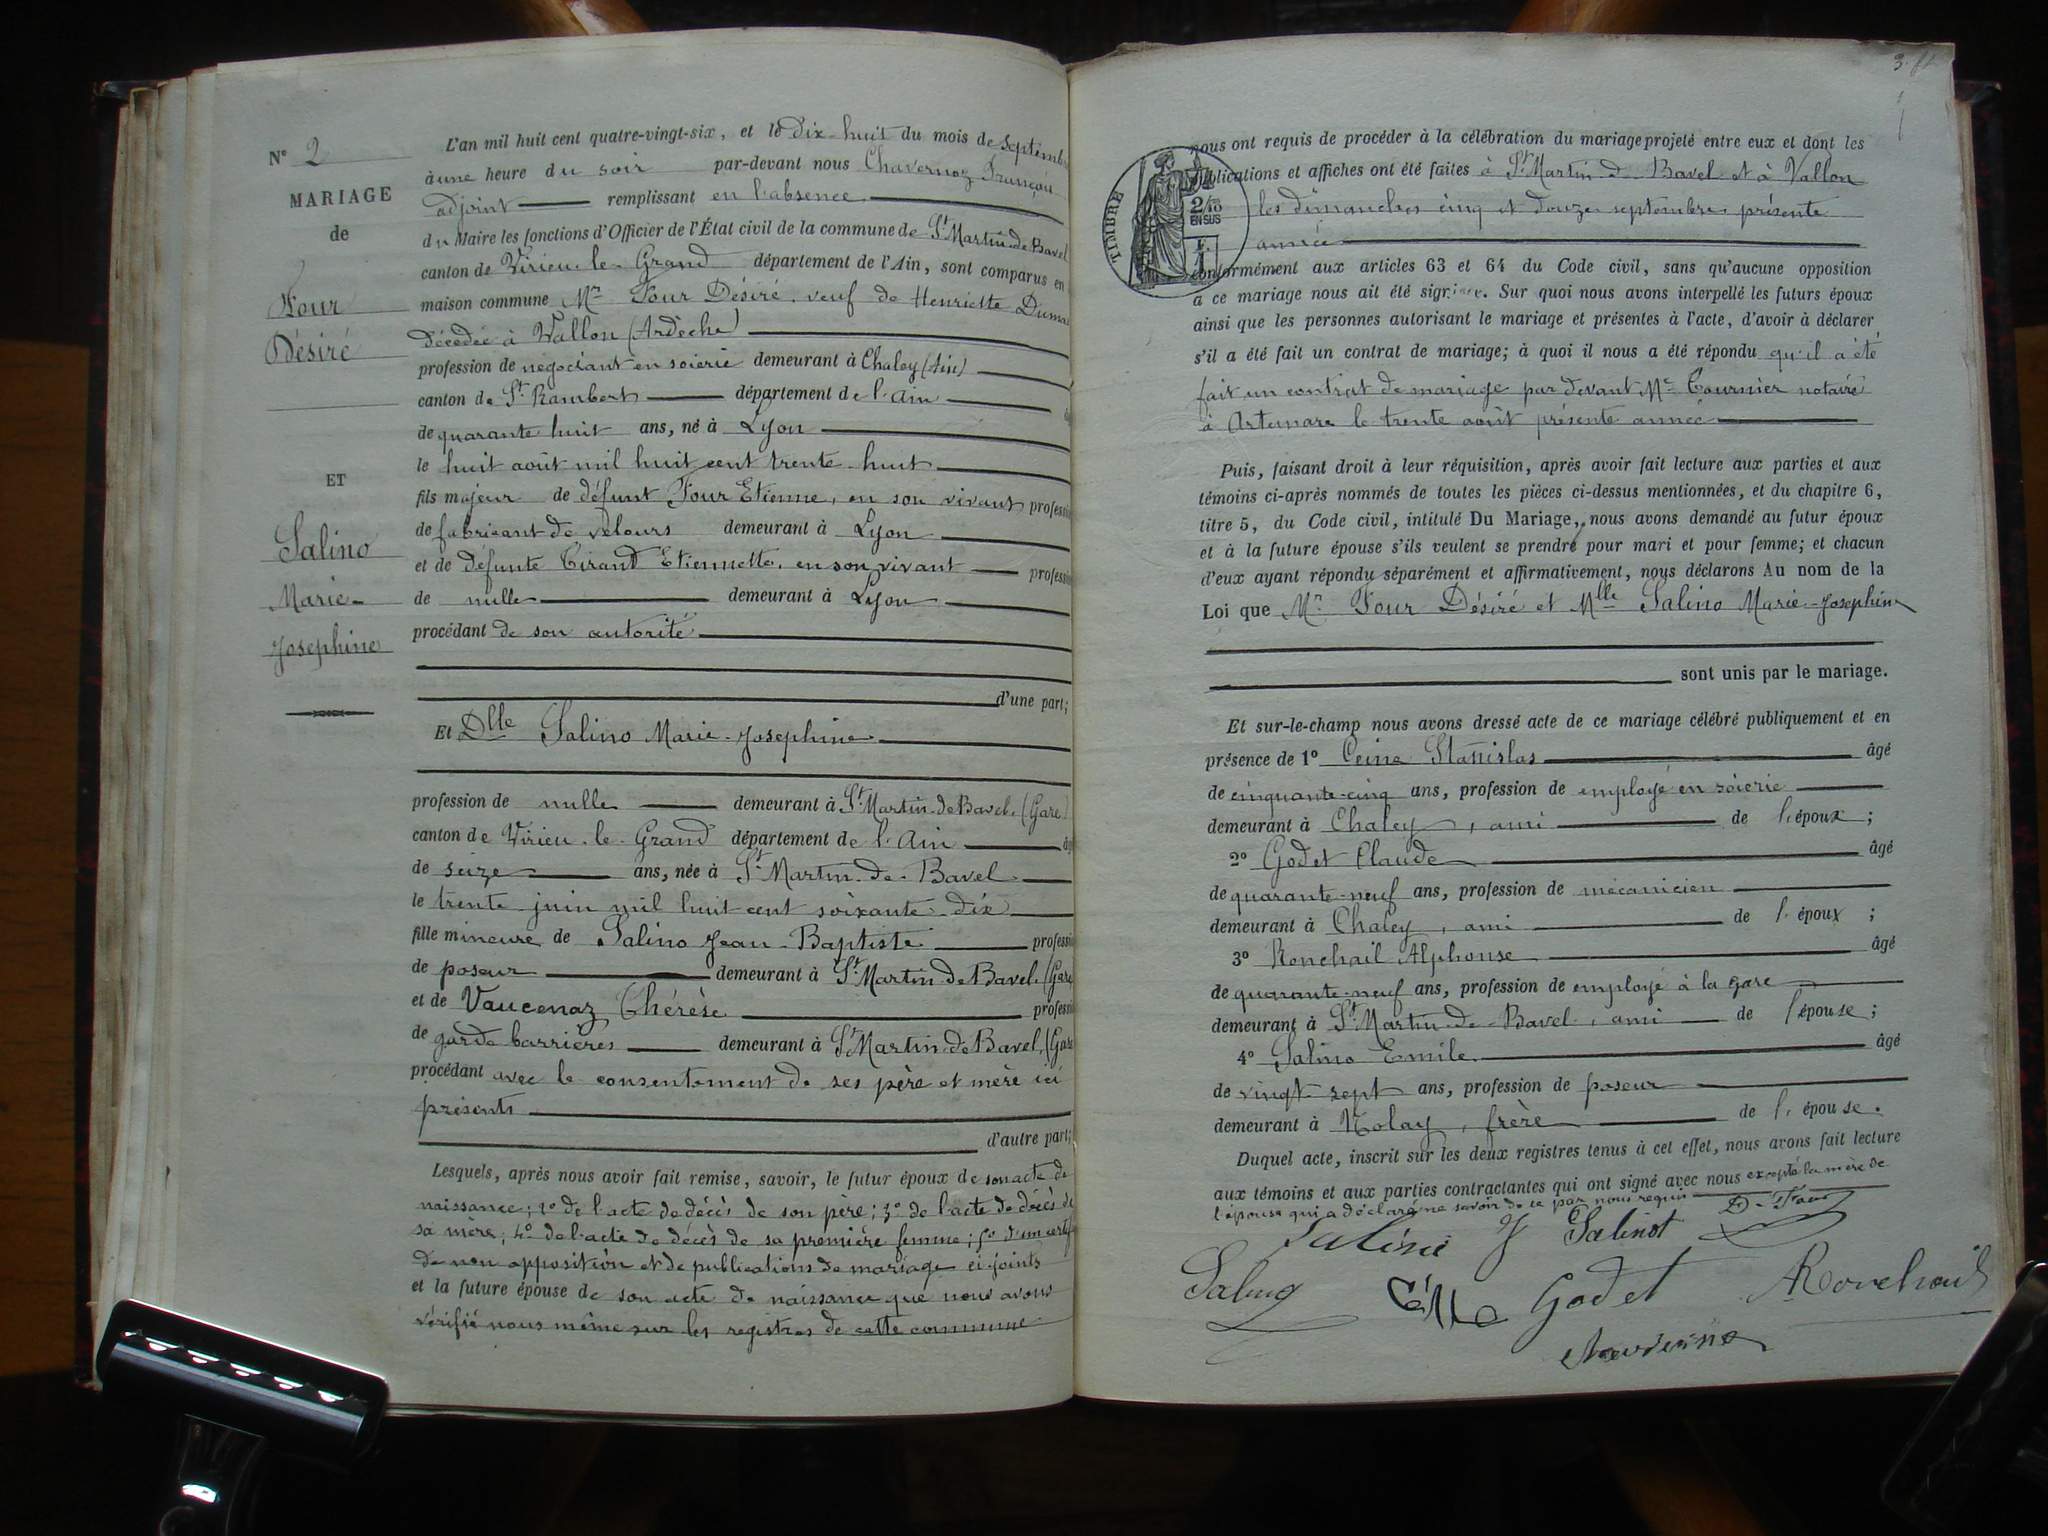 N° 2
MARIAGE
de
Four
Désiré
ET
Salino
Marie-
Josephine
L'an mil huit cent quatre-vingt-six, et le dix-huit du mois de Septembre
à une heure du soir par-devant nous Chavernoz François
adjoint remplissant en l'absence
du Maire les fonctions d'Officier de l'État civil de la commune de St Martin-de-Bavel
canton de Virieu-le-Grand département de l'Ain, sont comparus en
maison commune Mr Four Désiré, veuf de Henriette Dumas
décédée à Vallon (Ardèche)
profession de négociant en soierie demeurant à Chaley (Ain)
canton de St Rambert département de l'Ain
de quarante huit ans, né à Lyon
le huit août mil huit cent trente-huit
fils majeur de défunt Four Etienne, en son vivant profession
de fabricant de velours demeurant à Lyon
et de défunte Tirand Etiennette, en son vivant profession
de nulle demeurant à Lyon
procédant de son autorité
d'une part;
Et Dlle Salino Marie-Josephine
profession de nulle demeurant à St Martin-de-Bavel (Gare)
canton de Virieu-le-Grand département de l'Ain
de seize ans, née à St Martin-de-Bavel
le trente juin mil huit cent soixante-dix
fille mineure de Salino Jean-Baptiste profession
de poseur demeurant à St Martin-de-Bavel (Gare
et de Vaucenaz Thérèse profession
de garde barrières demeurant à St Martin-de-Bavel (Gare
procédant avec le consentement de ses père et mère ici
présents
d'autre part;
Lesquels, après nous avoir fait remise, savoir, le futur époux de son acte de
naissance; 2° de l'acte de décès de son père; 3° de l'acte de décès de
sa mère; 4° de l'acte de décès de sa première femme; 5° d'un certif
de non opposition et de publications de mariage ci-joints
et la future épouse de son acte de naissance que nous avons
vérifié nous même sur les registres de cette commune
nous ont requis de procéder à la célébration du mariage projeté entre eux et dont les
publications et affiches ont été faites à St Martin-de-Bavel et à Vallon
TIMBRE
2/10
EN SUS
les dimanches cinq et douze septembre présente
année
conformément aux articles 63 et 64 du Code civil, sans qu'aucune opposition
à ce mariage nous ait été signifiée. Sur quoi nous avons interpellé les futurs époux
ainsi que les personnes autorisant le mariage et présentes à l'acte, d'avoir à déclarer
s'il a été fait un contrat de mariage; à quoi il nous a été répondu qu'il a été
fait un contrat de mariage par devant Me Tournier notaire
à Artemare le trente août présente année
Puis, faisant droit à leur réquisition, après avoir fait lecture aux parties et aux
témoins ci-après nommés de toutes les pièces ci-dessus mentionnées, et du chapitre 6,
titre 5, du Code civil, intitulé Du Mariage, nous avons demandé au futur époux
et à la future épouse s'ils veulent se prendre pour mari et pour femme; et chacun
d'eux ayant répondu séparément et affirmativement, nous déclarons Au nom de la
Loi que Mr Four Désiré et Mlle Salino Marie-Josephine
sont unis par le mariage.
Et sur-le-champ nous avons dressé acte de ce mariage célébré publiquement et en
présence de 1° Ceine Stanislas âgé
de cinquante-cinq ans, profession de employé en soierie
demeurant à Chaley, ami de l'époux;
2° Godet Claude âgé
de quarante-neuf ans, profession de mécanicien
demeurant à Chaley, ami de l'époux;
3° Ronchail Alphonse âgé
de quarante-neuf ans, profession de employé à la gare
demeurant à St Martin-de-Bavel, ami de l'épouse;
4° Salino Emile âgé
de vingt-sept ans, profession de poseur
demeurant à Nolay, frère de l'épouse.
Duquel acte, inscrit sur les deux registres tenus à cet effet, nous avons fait lecture
aux témoins et aux parties contractantes qui ont signé avec nous excepté la mère de
l'épouse qui a déclaré ne savoir de ce par nous requis
Salino J Salinot D. Four
Salino Godet ARonchail